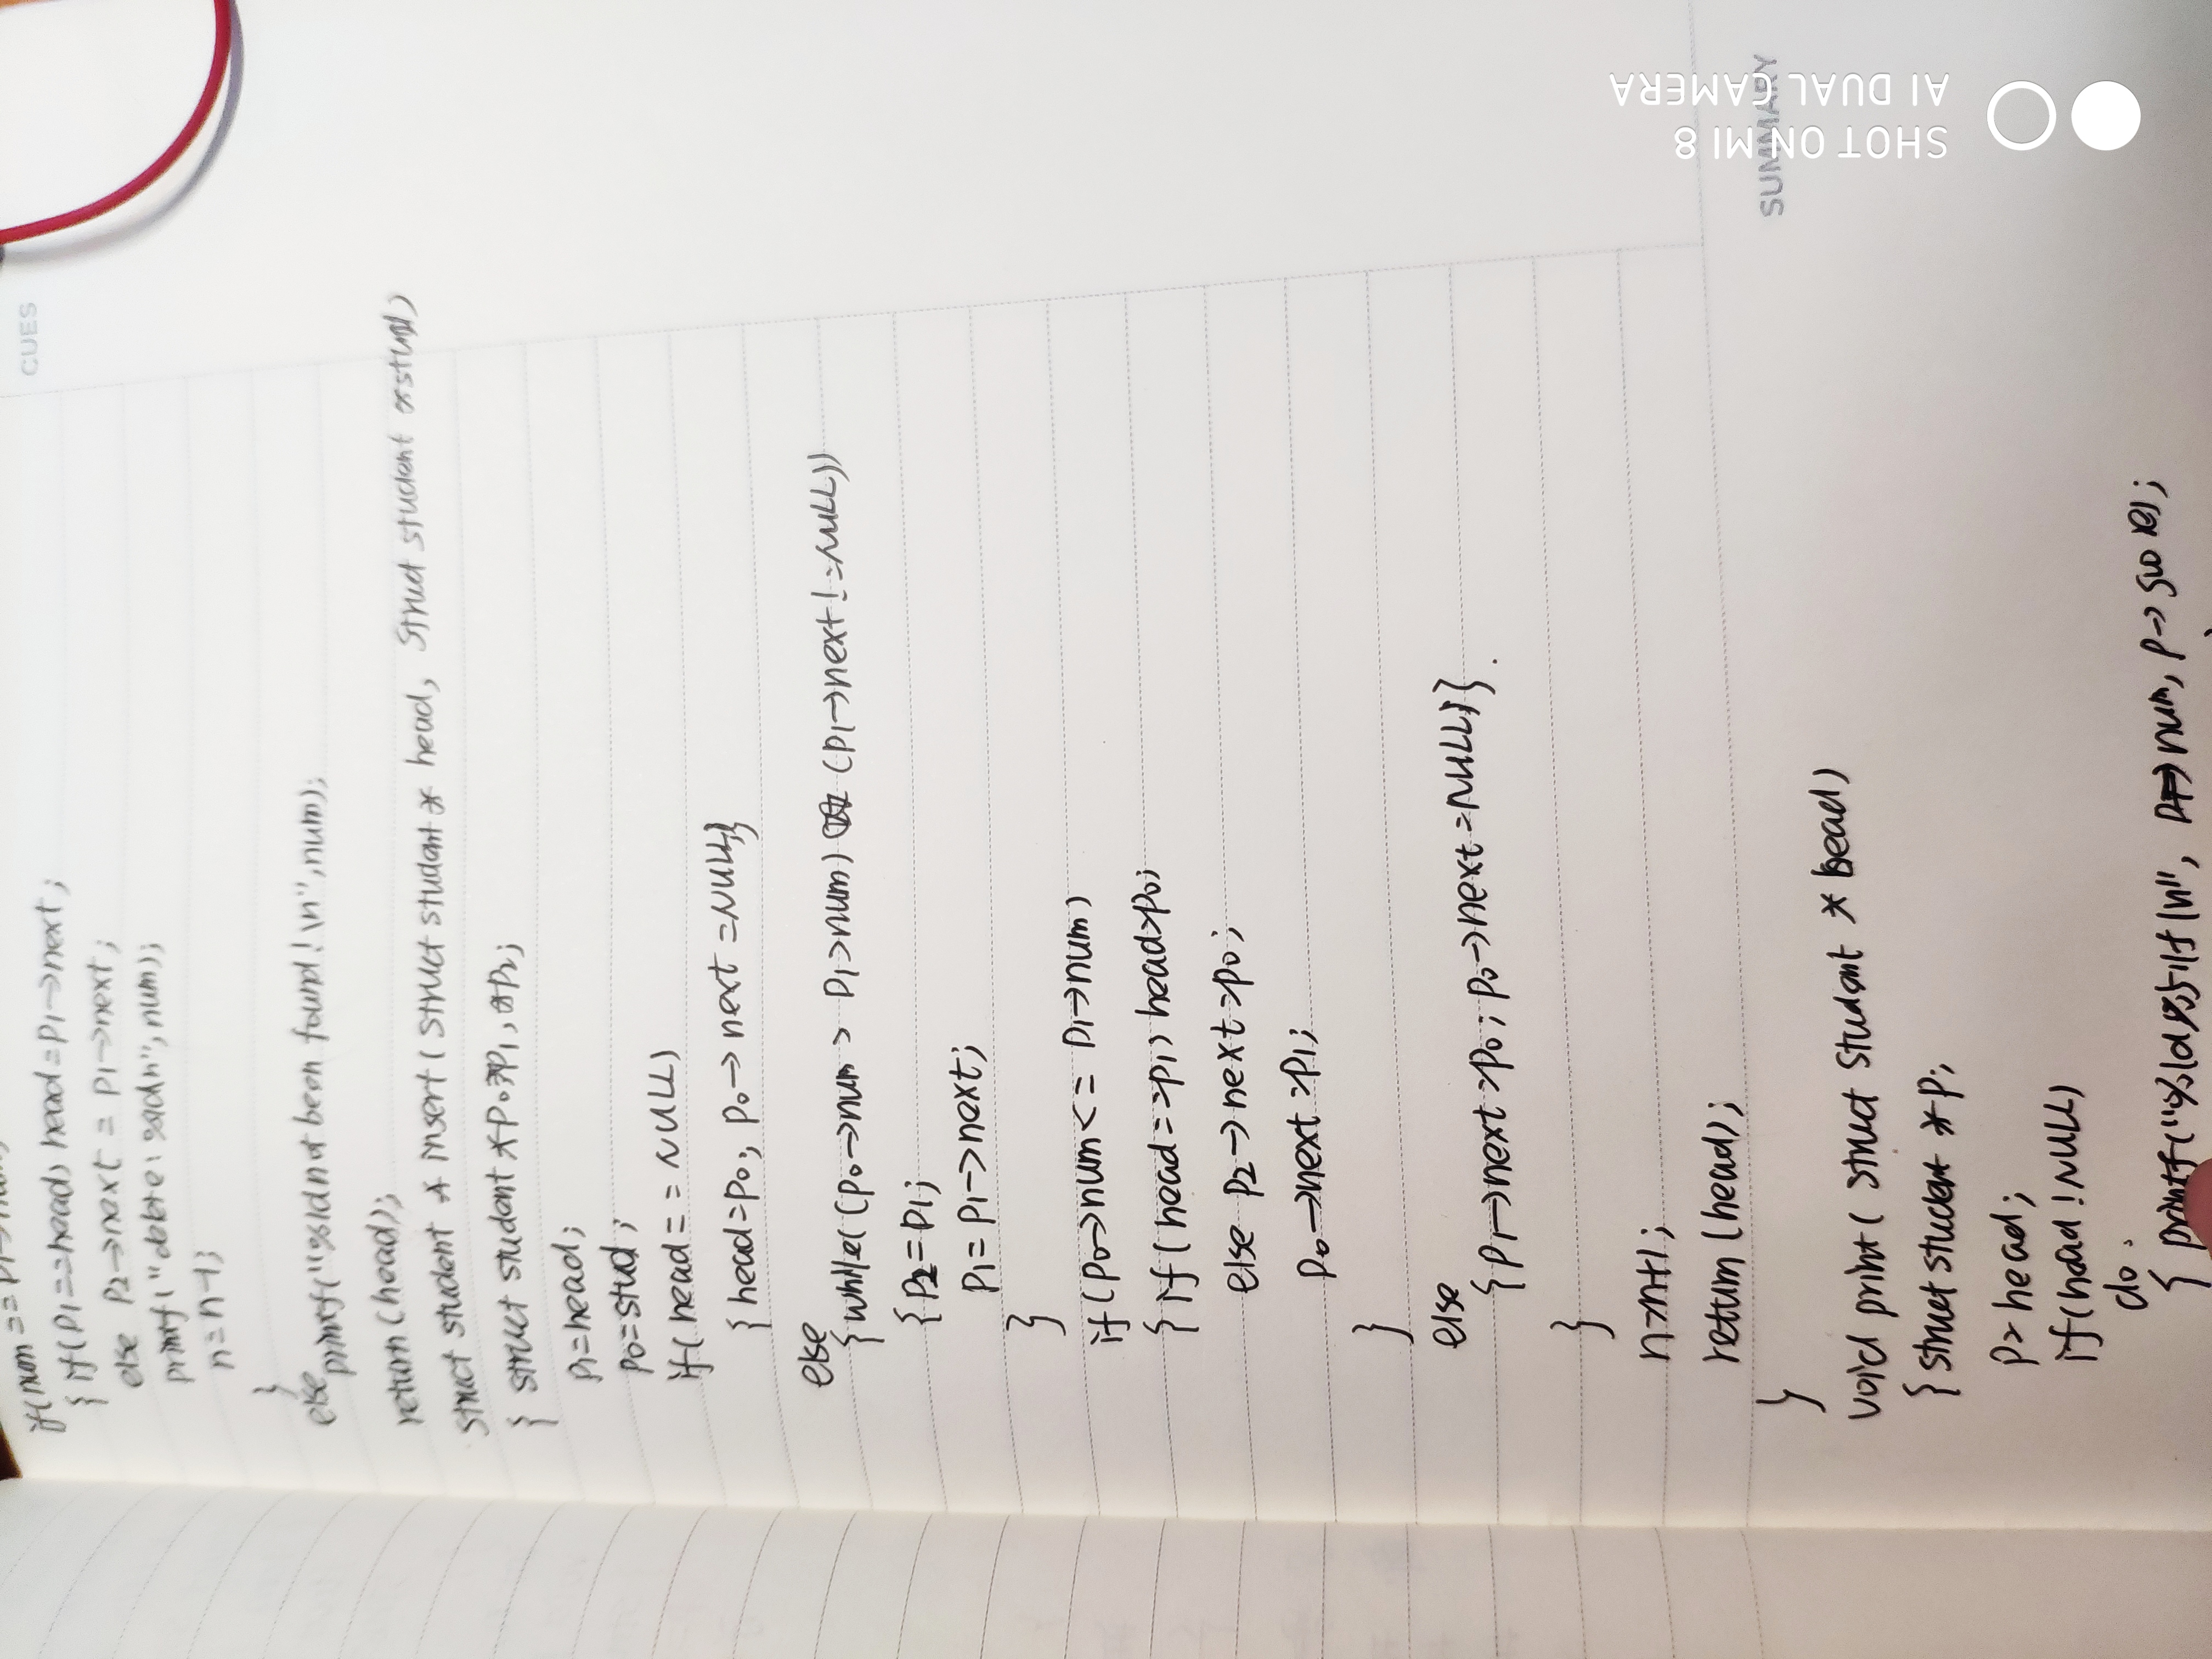 if(num==p1->num)
{ if(p1==head) head=p1->next;
else p2->next = p1->next;
printf("delete: %ld\n",num);
n=n-1;
}
else printf("%ld not been found!\n",num);
return(head);
struct student * insert( struct student * head, struct student *stud)
{ struct student *p0,*p1,*p2;
p1=head;
p0=stud;
if( head == NULL)
{ head=p0; p0->next =NULL;}
else
{ while((p0->num > p1->num) && (p1->next!=NULL))
{ p2=p1;
p1= p1->next;
}
if(p0->num<= p1->num)
{ if(head==p1) head=p0;
else p2->next=p0;
p0->next=p1;
}
else
{p1->next=p0; p0->next=NULL;}
}
n=n+1;
return (head);
}
void print( struct student * head)
{ struct student *p;
p=head;
if(head!NULL)
do
{ printf("%ld%5.1f\n", p->num, p->score);
CUES
SUMMARY
SHOT ON MI 8
AI DUAL CAMERA